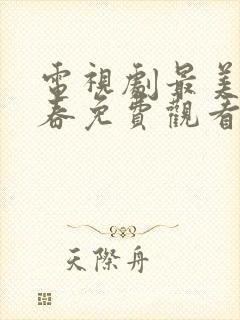 電視劇最美
春免費觀看
天際舟